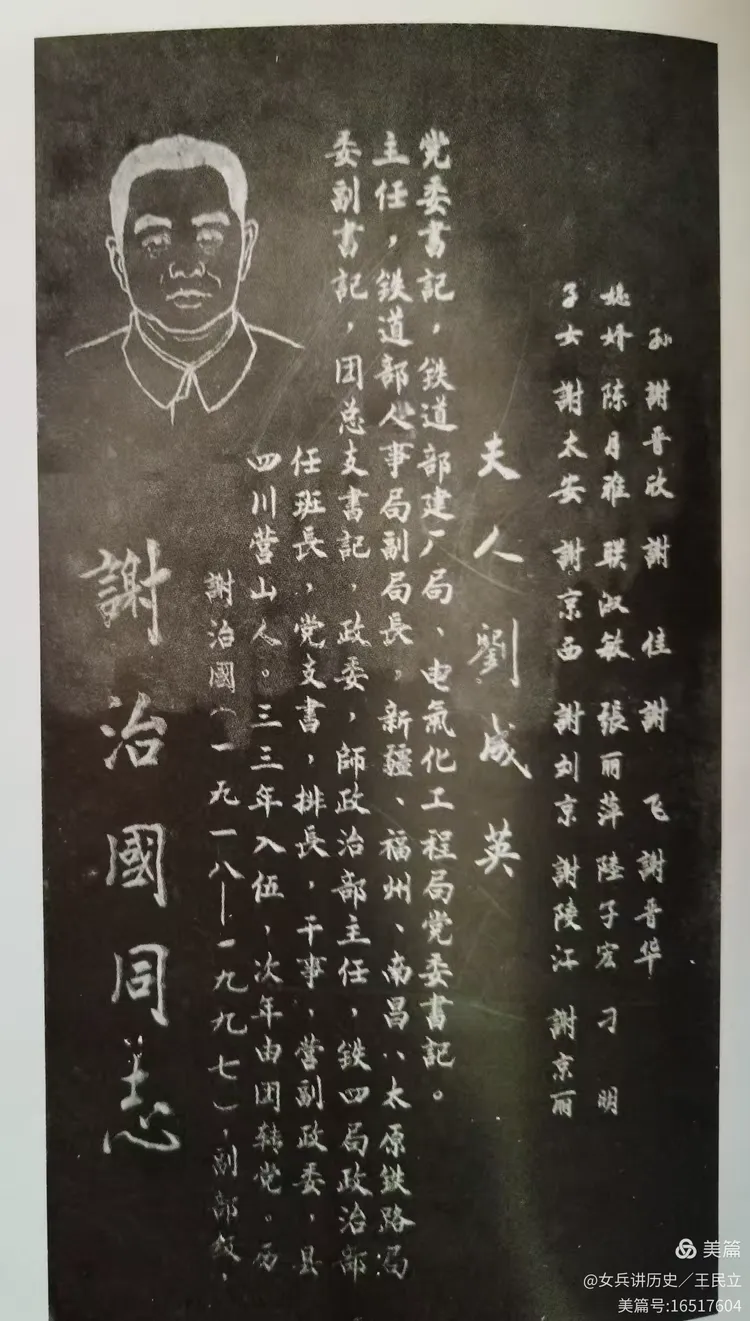 謝治國同志
謝治國（一九一八—一九九七），副部级，
四川营山人。三三年入伍，次年由团转党。历
任班長，党支書，排長，干事，营副政委，县
委副書記，团总支書記，政委，師政治部主任，铁四局政治部
主任，铁道部人事局副局長，新疆、福州、南昌、太原铁路局
党委書記，铁道部建厂局、电氣化工程局党委書記。
夫人劉成英
子女 謝太安 謝京西 謝刘京 謝陵江 謝京丽
媳婿 陈月雅 联淑敏 張丽萍 陸子宏 刁明
孙 謝晋欣 謝佳 謝飞 謝晋华
美篇
@女兵讲历史／王民立
美篇号:16517604